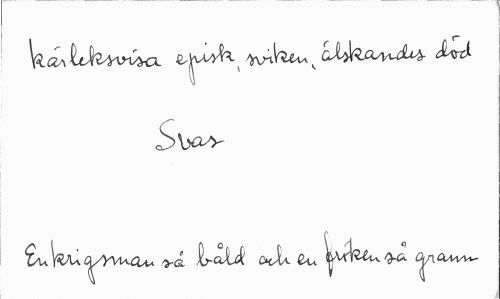 kärleksvisa episk, sviken, älskandes död
Svas
En krigsman så båld och en fröken så grann